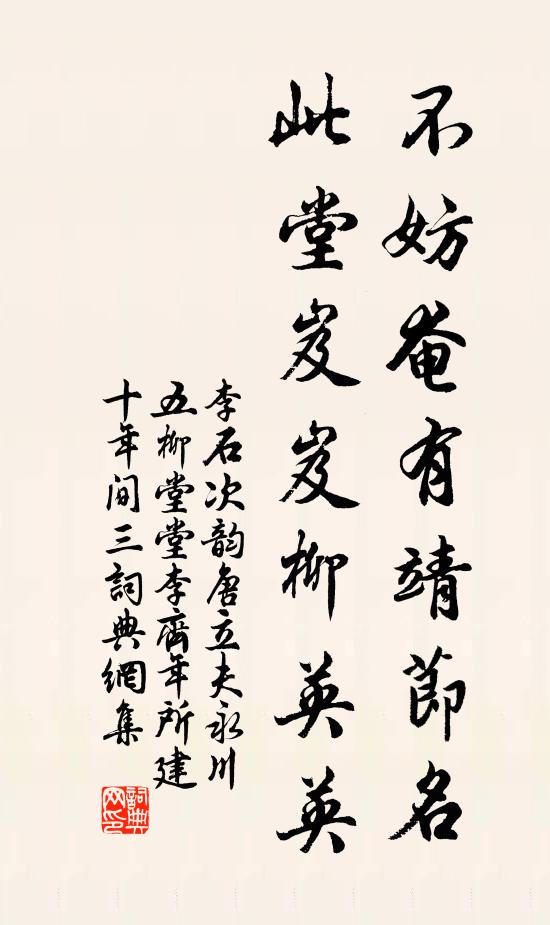 不妨菴有靖節名
此堂岌岌柳英英
李石次韵唐立夫永川
五柳堂堂李齊年所建
十年间三詞典網集
詞典网印